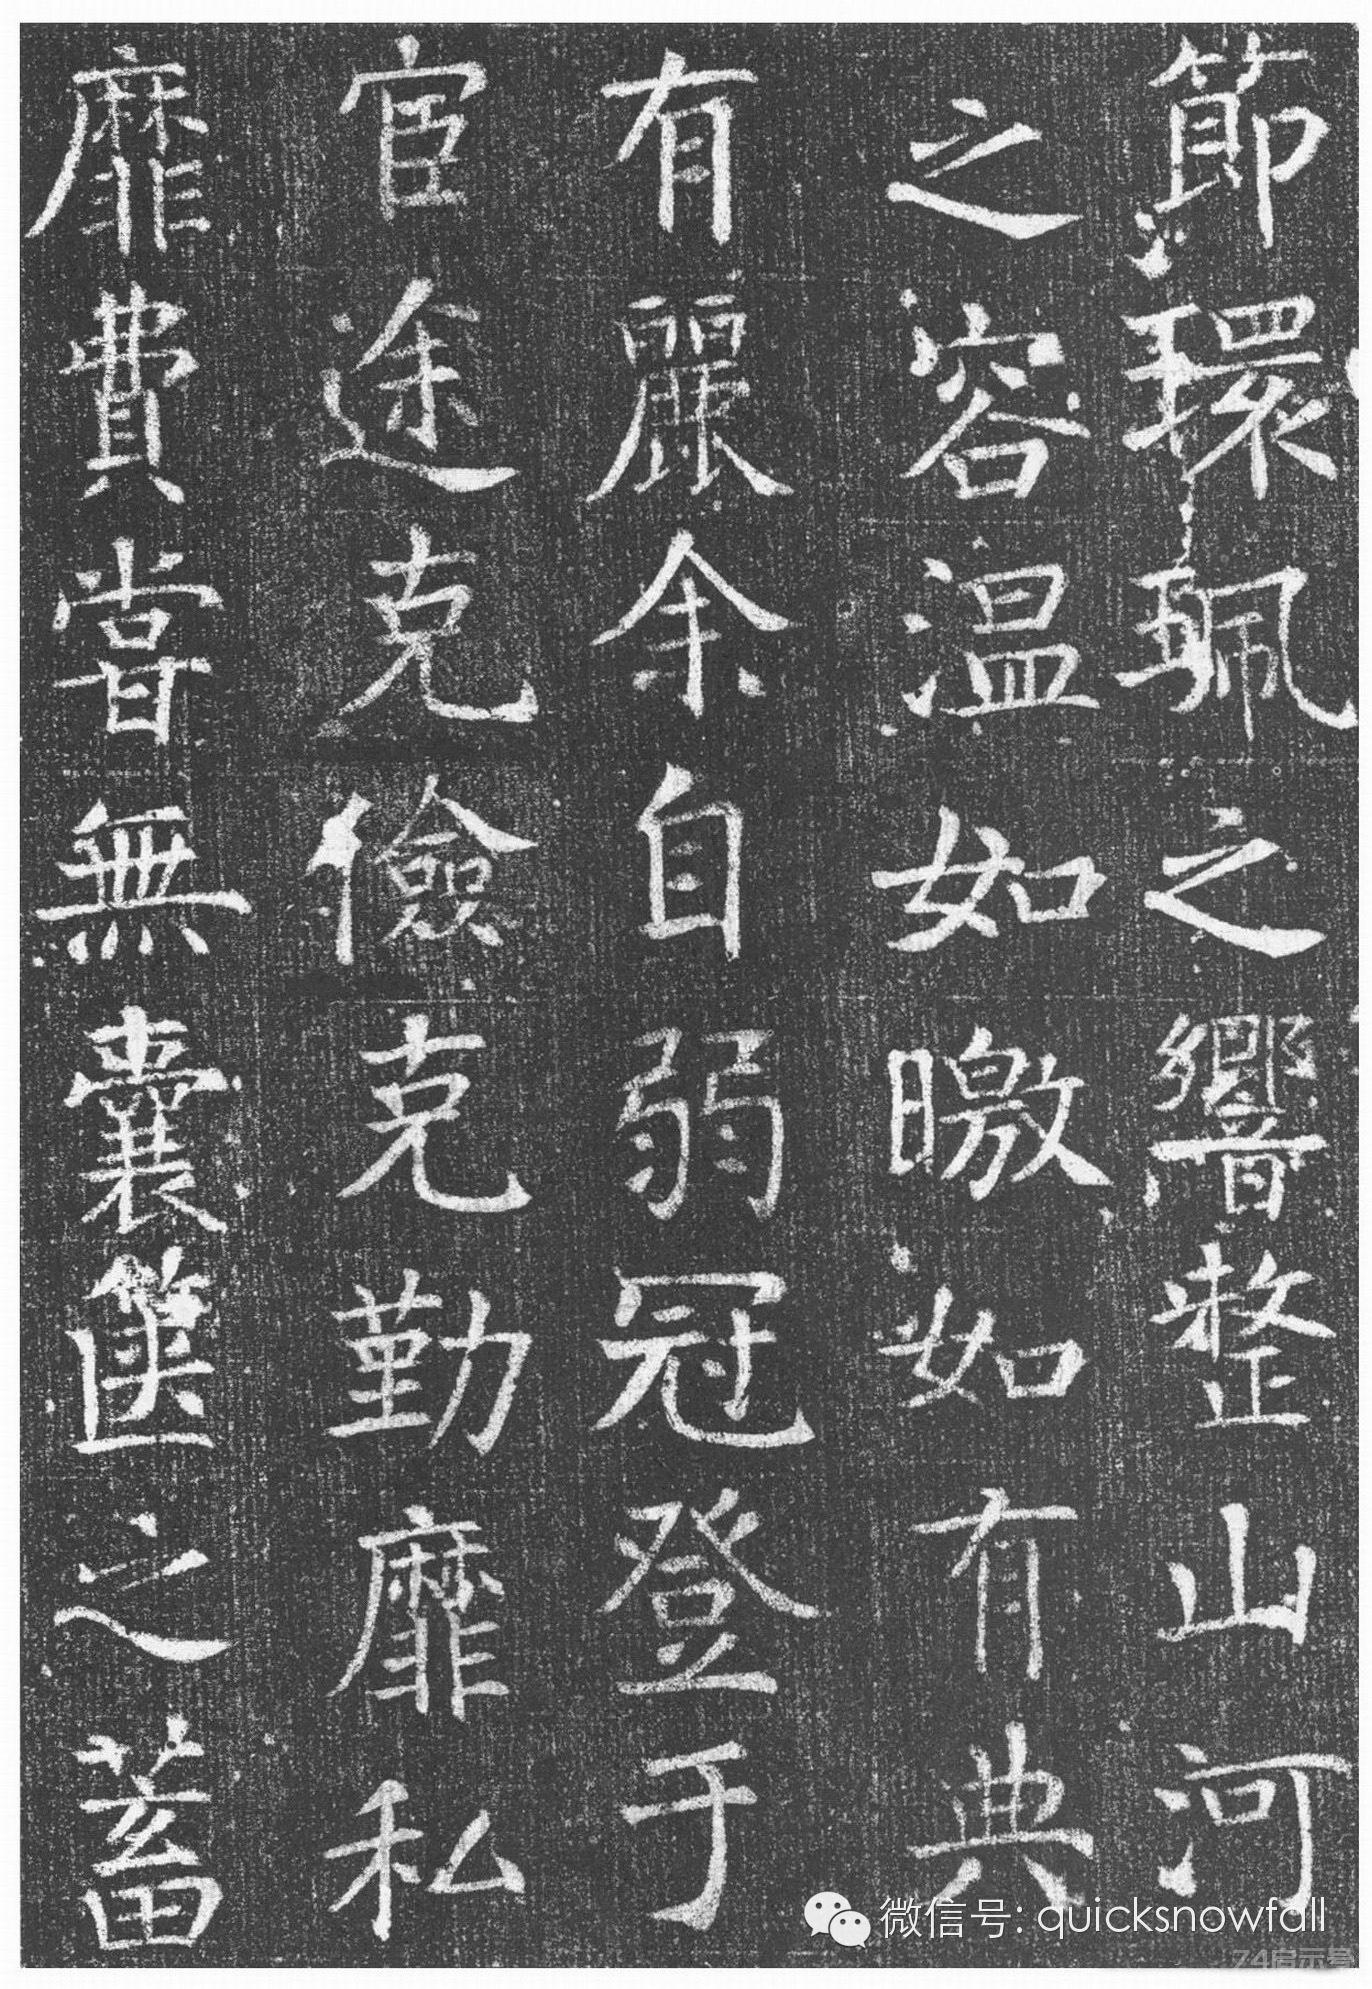 節環珮之響整山河
之容温如曒如有典
有麗余自弱冠登于
宦途克儉克勤靡私
靡費嘗無囊篋之蓄
微信号: quicksnowfall